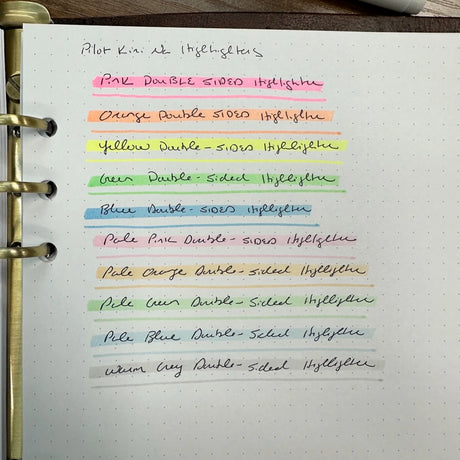 Pilot Kire na Highlighters
Pink Double SIDED Highlighter
Orange Double SIDED Highlighter
Yellow Double-SIDED Highlighter
Green Double-Sided Highlighter
Blue Double-SIDED Highlighter
Pale Pink Double-SIDED Highlighter
Pale Orange Double-sided Highlighter
Pale Green Double-Sided Highlighter
Pale Blue Double-Sided Highlighter
Warm Grey Double-sided Highlighter